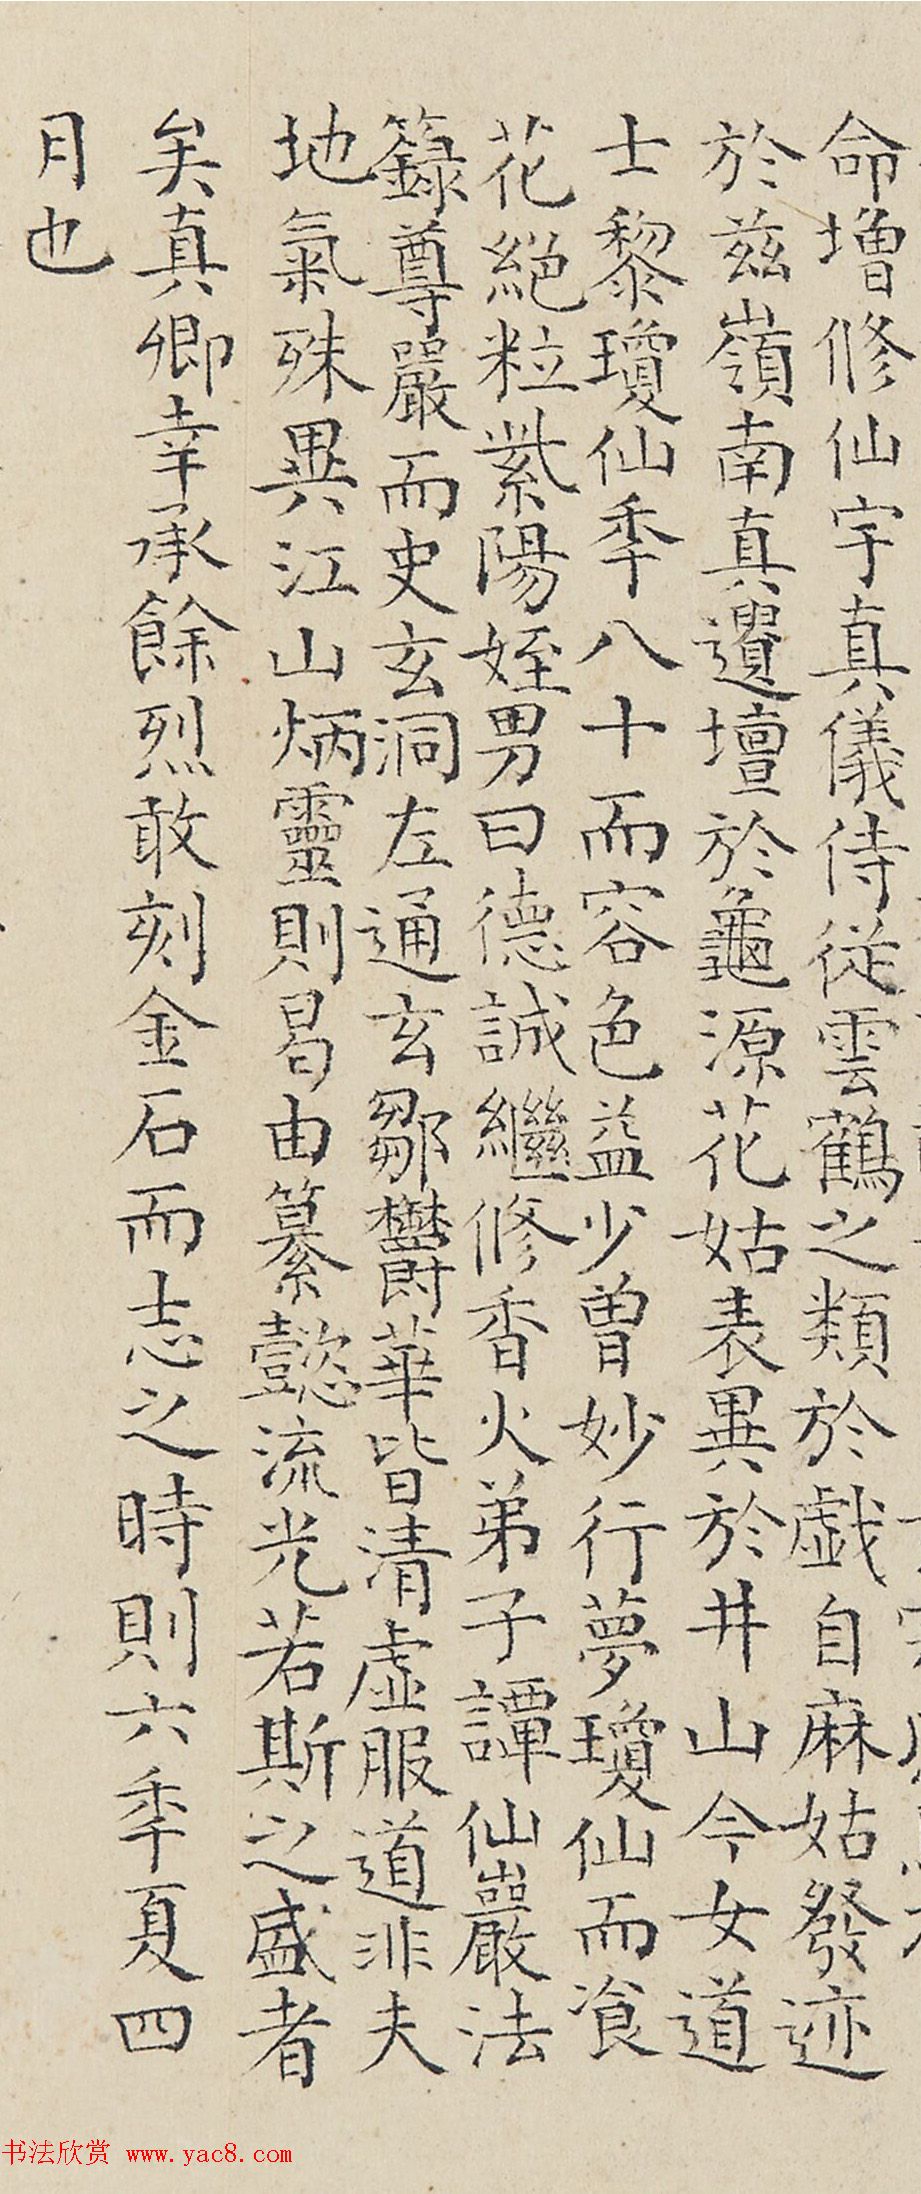 命增修仙宇真儀侍從雲鶴之類於戲自麻姑發迹
於兹嶺南真遺壇於龜源花姑表異於井山今女道
士黎瓊仙秊八十而容色益少曾妙行夢瓊仙而飡
花絕粒紫陽姪男曰德誠繼修香火弟子譚仙巖法
籙尊嚴而史玄洞左通玄鄒欝華皆清虛服道非夫
地氣殊異江山炳靈則曷由纂懿流光若斯之盛者
矣真卿幸承餘烈敢刻金石而志之時則六秊夏四
月也
书法欣赏 www.yac8.com